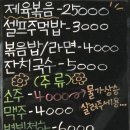 제육볶음-25000
셀프주먹밥-3000
볶음밥/라면-4000
잔치국수-5000
(주류)
소주-4000 물가상승
맥주-4000 살려주세요...